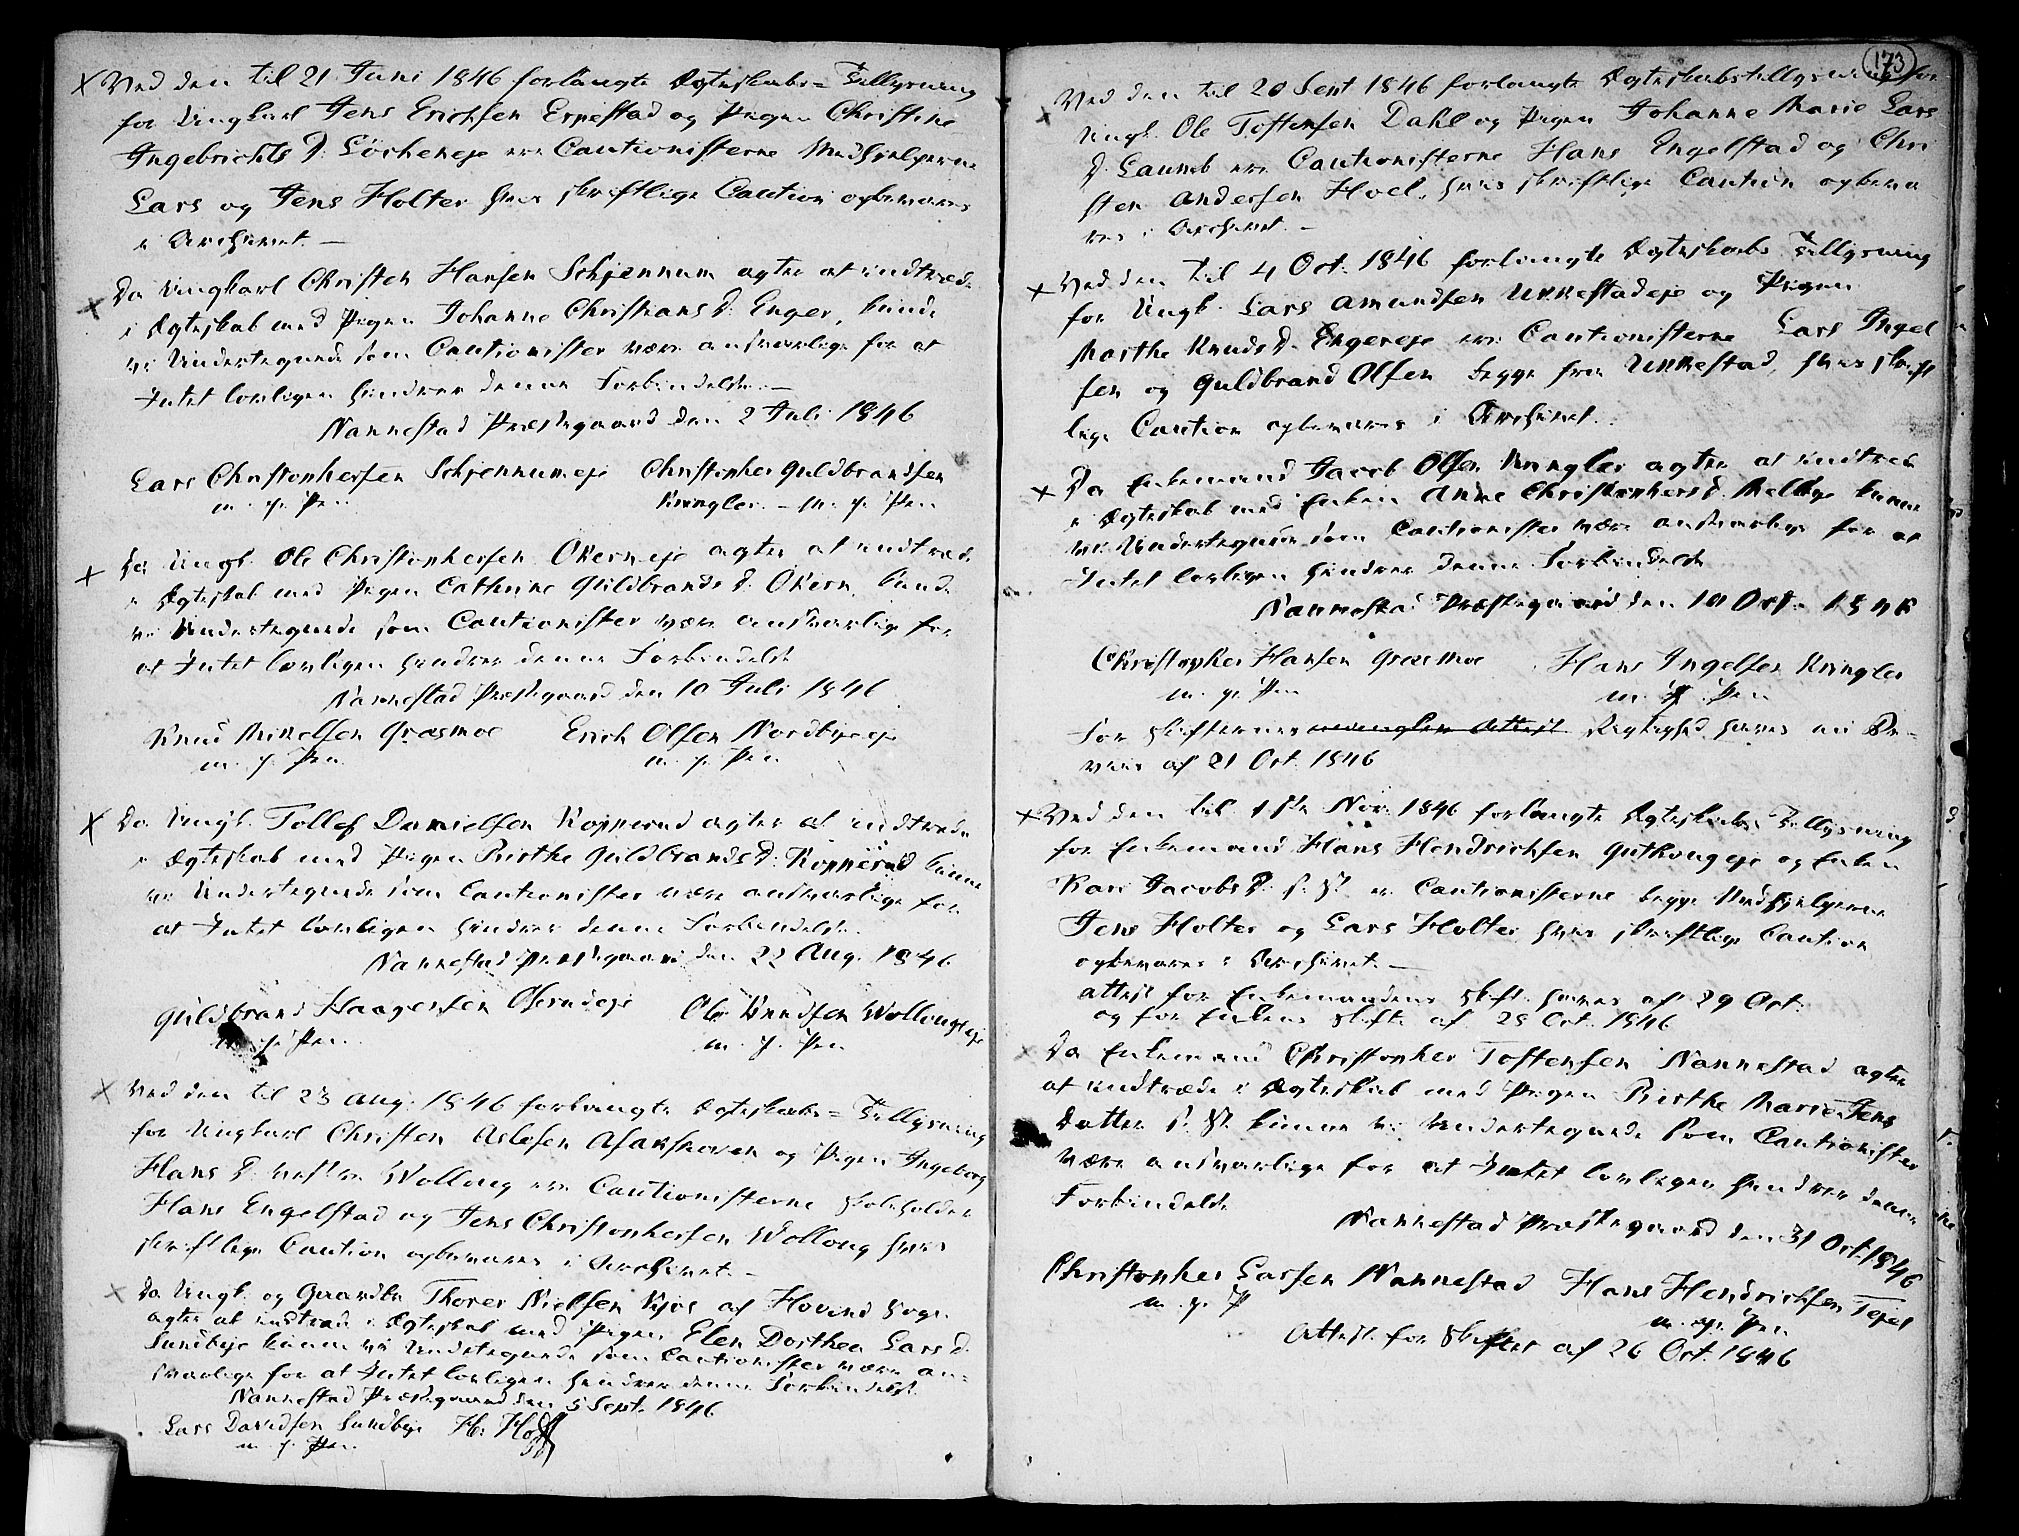 X Ved den til 21 Juni 1846 forlangte Ægteskabs= Tillysning
for Ungkarl Jens Erichsen Erpestad og Pigen Christine
Ingebrichts D. Löcheneje ere Cautionisterne Medhjelperne
Lars og Jens Holter hvis skriftlige Caution opbevares
i Archivet. —
X Da Ungkarl Christen Hansen Schjennum agter at indtræde
i Ægteskab med Pigen Johanne Christians D. Enger, kunde
vi Undertegnede som Cautionister være ansvarlige for at
Intet lovligen hindrer denne Forbindelse. —
Nannestad Præstegaard den 2 Juli 1846
Lars Christophersen Schjennumeje Christopher Guldbrandsen
m. p. Pen Kringler. – m. p. Pen
X Da Ungk. Ole Christophersen Okerneje agter at indtræde
i Ægteskab med Pigen Cathrine Guldbrands D. Okern, kunde
vi Undertegnede som Cautionister være ansvarlige for
at Intet lovligen hindrer denne Forbindelse
Nannestad Præstegaard den 10 Juli 1846
Knud Mikelsen Græsmoe Erich Olsen Nordbyeje
m. p. Pen m. p. Pen
X Da Ungk. Tollef Danielsen Kopperud agter at indtræde
i Ægteskab med Pigen Birthe Guldbrands D. Kopperud kunne
vi Undertegnede som Cautionister være ansvarlige for
at Intet lovligen hindrer denne Forbindelse.
Nannestad Præstegaard den 22 Aug. 1846
Guldbrand Haagensen Åsrudeje Ole Knudsen Wollongeje
m. p. Pen m. p. Pen
X Ved den til 23 Aug. 1846 forlangte Ægteskabs= Tillysning
for Ungkarl Christen Aslesen Asakskoven og Pigen Ingeborg
Hans D. vestre Wollong ere Cautionisterne Skoleholder
Hans Engelstad og Jens Christophersen Wollong hvis
skriftlige Caution opbevares i Archivet. —
X Da Ungk. og Gaardbr. Thorer Nielsen Kjos af Hovind Sogn
agter at indtræde i Ægteskab med Pigen Elen Dorthea Lars D.
Sundbye kunne vi Undertegnede som Cautionister være an=
svarlige for at Intet lovligen hindrer denne Forbindelse
Nannestad Præstegaard den 5 Sept. 1846
Lars Davidsen Sundbye H.
m. p. Pen
173
X Ved den til 20 Sept 1846 forlangte Ægteskabstillysning for
Ungk. Ole Tostensen Dahl og Pigen Johanne Marie Lars
D. Laumb ere Cautionisterne Hans Engelstad og Chri
sten Andersen Hoel, hvis skriftlige Caution opbeva
res i Archivet. —
X Ved den til 4 Oct. 1846 forlangte Ægteskabs Tillysning
for Ungk. Lars Amundsen Ukkestadeje og Pigen
Marthe Knuds D. Engereje ere Cautionisterne Lars Ingel
sen og Guldbrand Olsen begge fra Ukkestad, hvis skrift
lige Caution opbevares i Archivet.
X Da Enkemand Jacob Olsen Kringler agter at indtræde
i Ægteskab med Enken Anne Christophers D. Melbye kunne
vi Undertegnede som Cautionister være ansvarlige for at
Intet lovligen hindrer denne Forbindelse
Nannestad Præstegaard den 10 Oct. 1846
Christopher Hansen Græsmoe Hans Ingelsen Kringler
m. p. Pen m. p. Pen
For Skifternes Rigtighed haves en Be=
viis af 21 Oct. 1846
X Ved den til 1ste Nov. 1846 forlangte Ægteskabs Tillysning
for Enkemand Hans Hendrichsen Guthongeje og Enken
Kari Jacobs D. s. St. er Cautionisterne begge Medhjelperne
Jens Holter og Lars Holter, hvis skriftlige Caution
opbevares i Archivet. —
Attest for Enkemandens Skift haves af 29 Oct.
og for Enkens Skifte af 28 Oct. 1846
X Da Enkemand Christopher Tostensen Nannestad agter
at indtræde i Ægteskab med Pigen Birthe Marie Jens
Datter s. St. kunne vi Undertegnede som Cautionister
være ansvarlige for at Intet lovligen hindrer denne
Forbindelse
Nannestad Præstegaard den 31 Oct. 1846
Christopher Larsen Nannestad Hans Hendrichsen Tejet
m. p. P m. p. Pen
Attest for Skiftet af 26 Oct. 1846